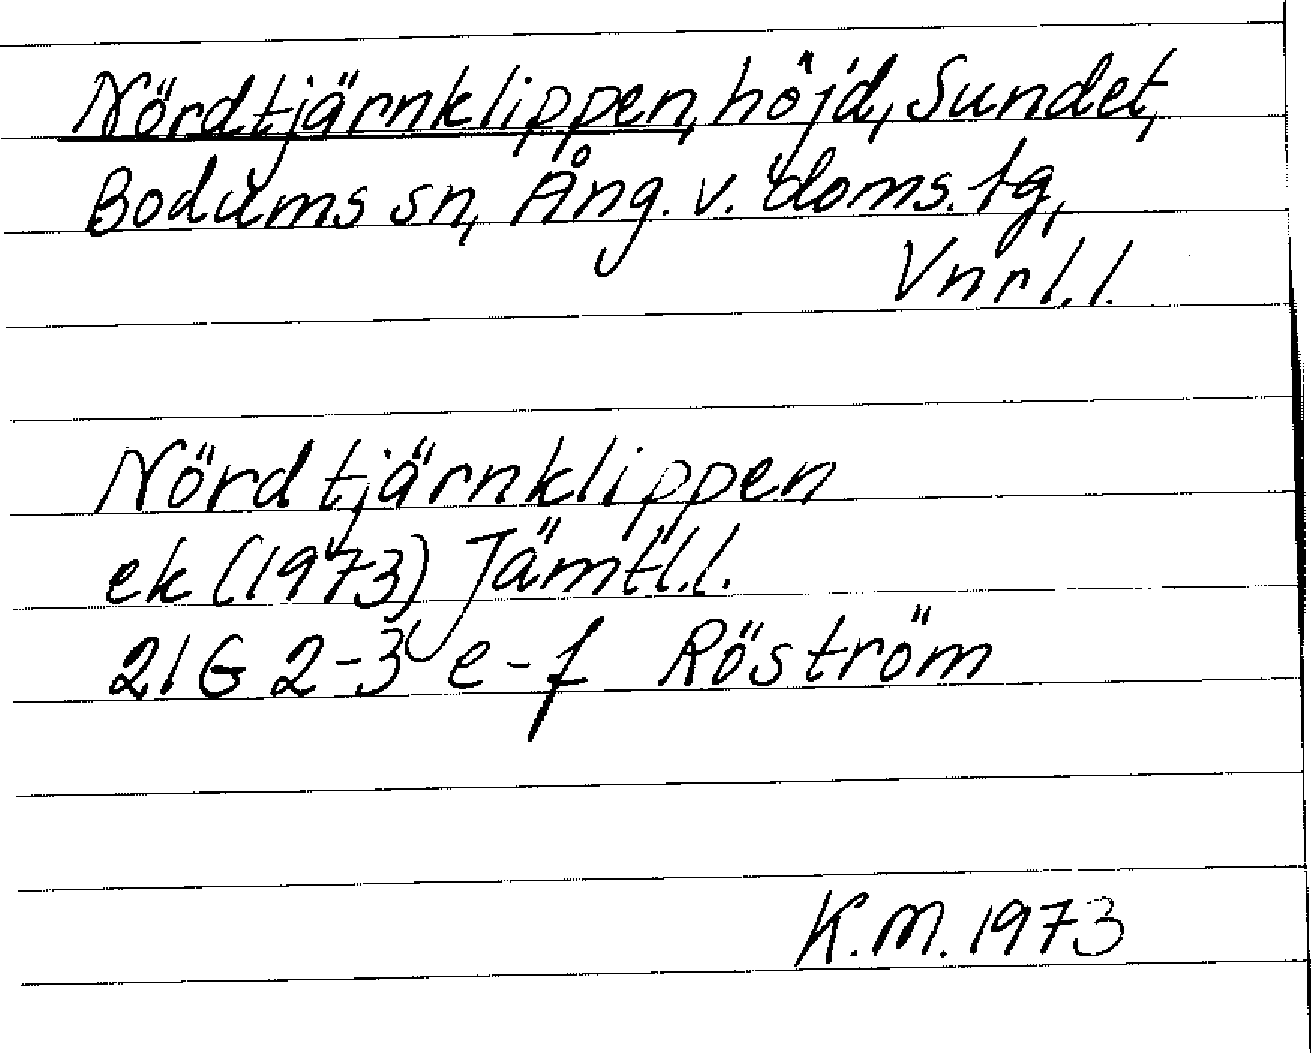 Nördtjärnklippen, höjd, Sundet,
Bodums sn, Ång. v. doms. tg,
Vnrl.l.
Nördtjärnklippen
ek (1973) Jämtl.l.
21G 2-3 e-f Röström
K.M. 1973